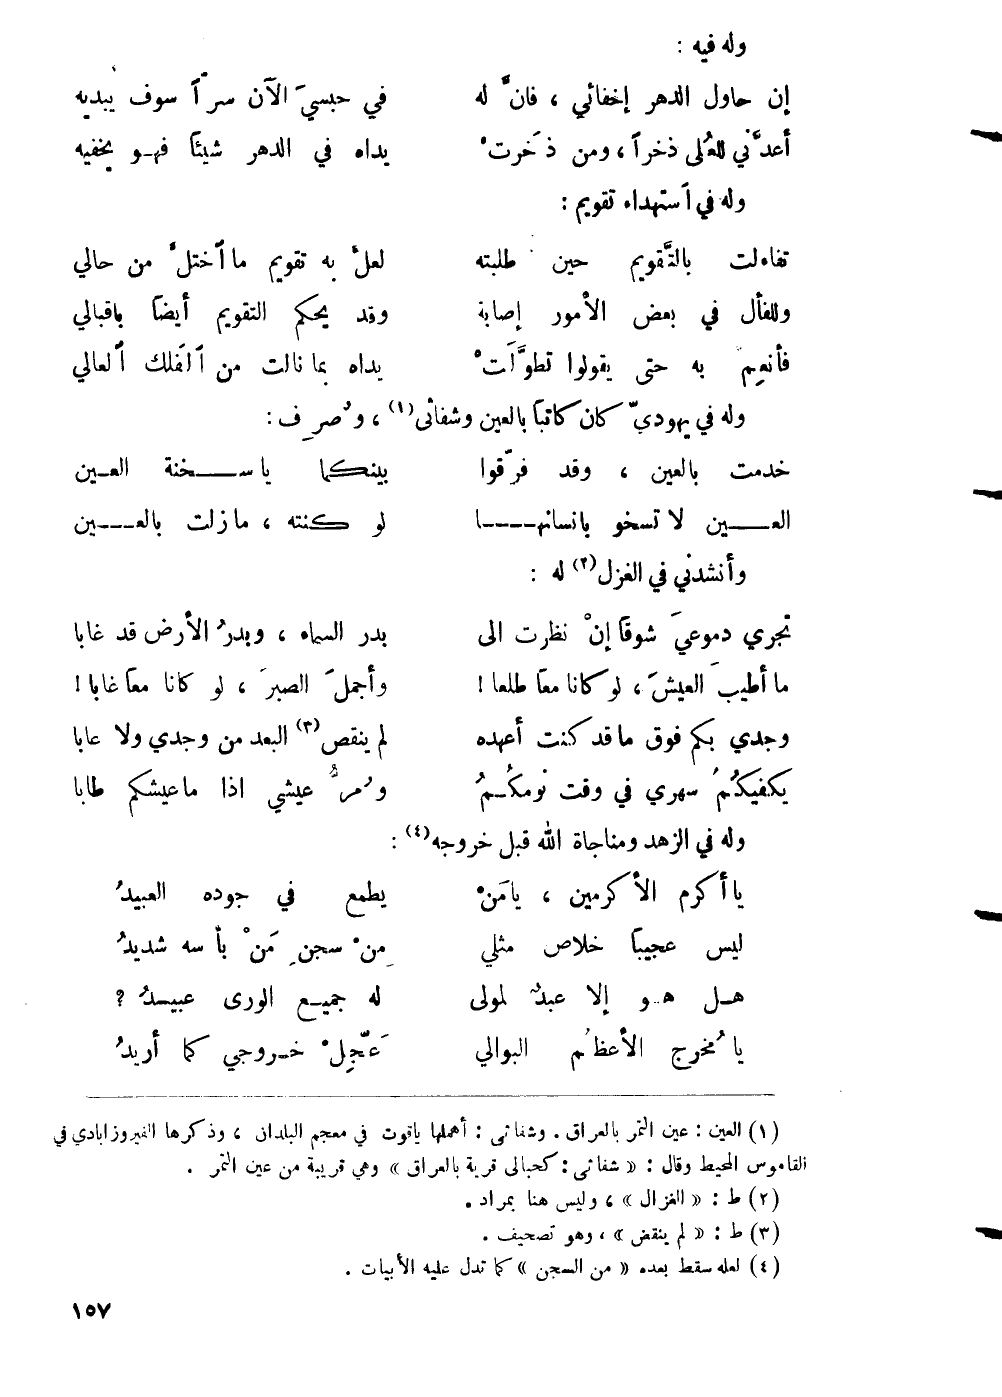 وله فيه :
إن حاول الدهر إخفائي ، فانَّ له في حبسيَ الآن سراً سوف يبديه
أعدَّني للعُلى ذخراً ، ومن ذَخَرتْ يداه في الدهر شيئاً فهو يخفيه
وله في استهداء تقويم :
تفاءلت بالتَّقويم حين طلبته لعلَّ به تقويم ما اختلَّ من حالي
وللفأل في بعض الأمور إصابة وقد يحكم التقويم أيضاً باقبالي
فأنعِمْ به حتى يقولوا تطوَّلَتْ يداه بما نالت من الفَلك العالي
وله في يهوديّ كان كاتباً بالعين وشفاثى(١) ، وصُرِف :
خدمت بالعين ، وقد فرّقوا بينكما ياسخنة العين
العين لا تسخو بانسانها لو كنته ، مازلت بالعين
وأنشدني في الغزل(٢) له :
تجري دموعيَ شوقاً إنْ نظرت الى بدر السماء ، وبدرُ الأرض قد غابا
ما أطيبَ العيشَ ، لو كانا معاً طلعا ! وأجملَ الصبرَ ، لو كانا معاً غابا !
وجدي بكم فوق ما قد كنت أعهده لم ينقص(٣) البعد من وجدي ولا عابا
يكفيكُمُ سهري في وقت نومكُمُ ومُرُّ عيشي اذا ما عيشكم طابا
وله في الزهد ومناجاة الله قبل خروجه(٤) :
يا أكرم الأكرمين ، يامَنْ يطمع في جوده العبيدُ
ليس عجيباً خلاص مثلي مِنْ سجنِ مَنْ بأسه شديدُ
هل هو إلا عبدٌ لمولى له جميع الورى عبيدُ ؟
يا مُخرج الأعظُم البوالي عَجِّلْ خروجي كما أريدُ
(١) العين : عين التمر بالعراق . وشفاثى : أهملها ياقوت في معجم البلدان ، وذكرها الفيروزابادي في
القاموس المحيط وقال : « شفاثى : كحبالى قرية بالعراق » وهي قريبة من عين التمر .
(٢) ط : « الغزال » ، وليس هنا بمراد .
(٣) ط : « لم ينقض » ، وهو تصحيف .
(٤) لعله سقط بعده « من السجن » كما تدل عليه الأبيات .
١٥٧